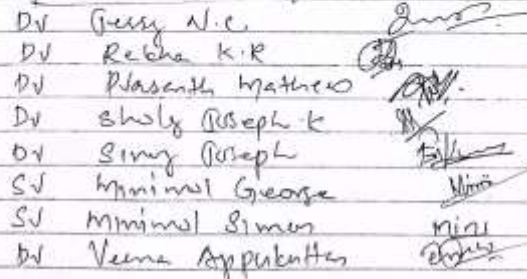 Dr Gessy N.C.
Dr Rekha K.R
Dr Prasanth Mathew
Dr Sholy Joseph K
Dr Simy Joseph
Sr Minimol George Mini
Sr Minimol Simon Mini
Dr Veena Appukuttan